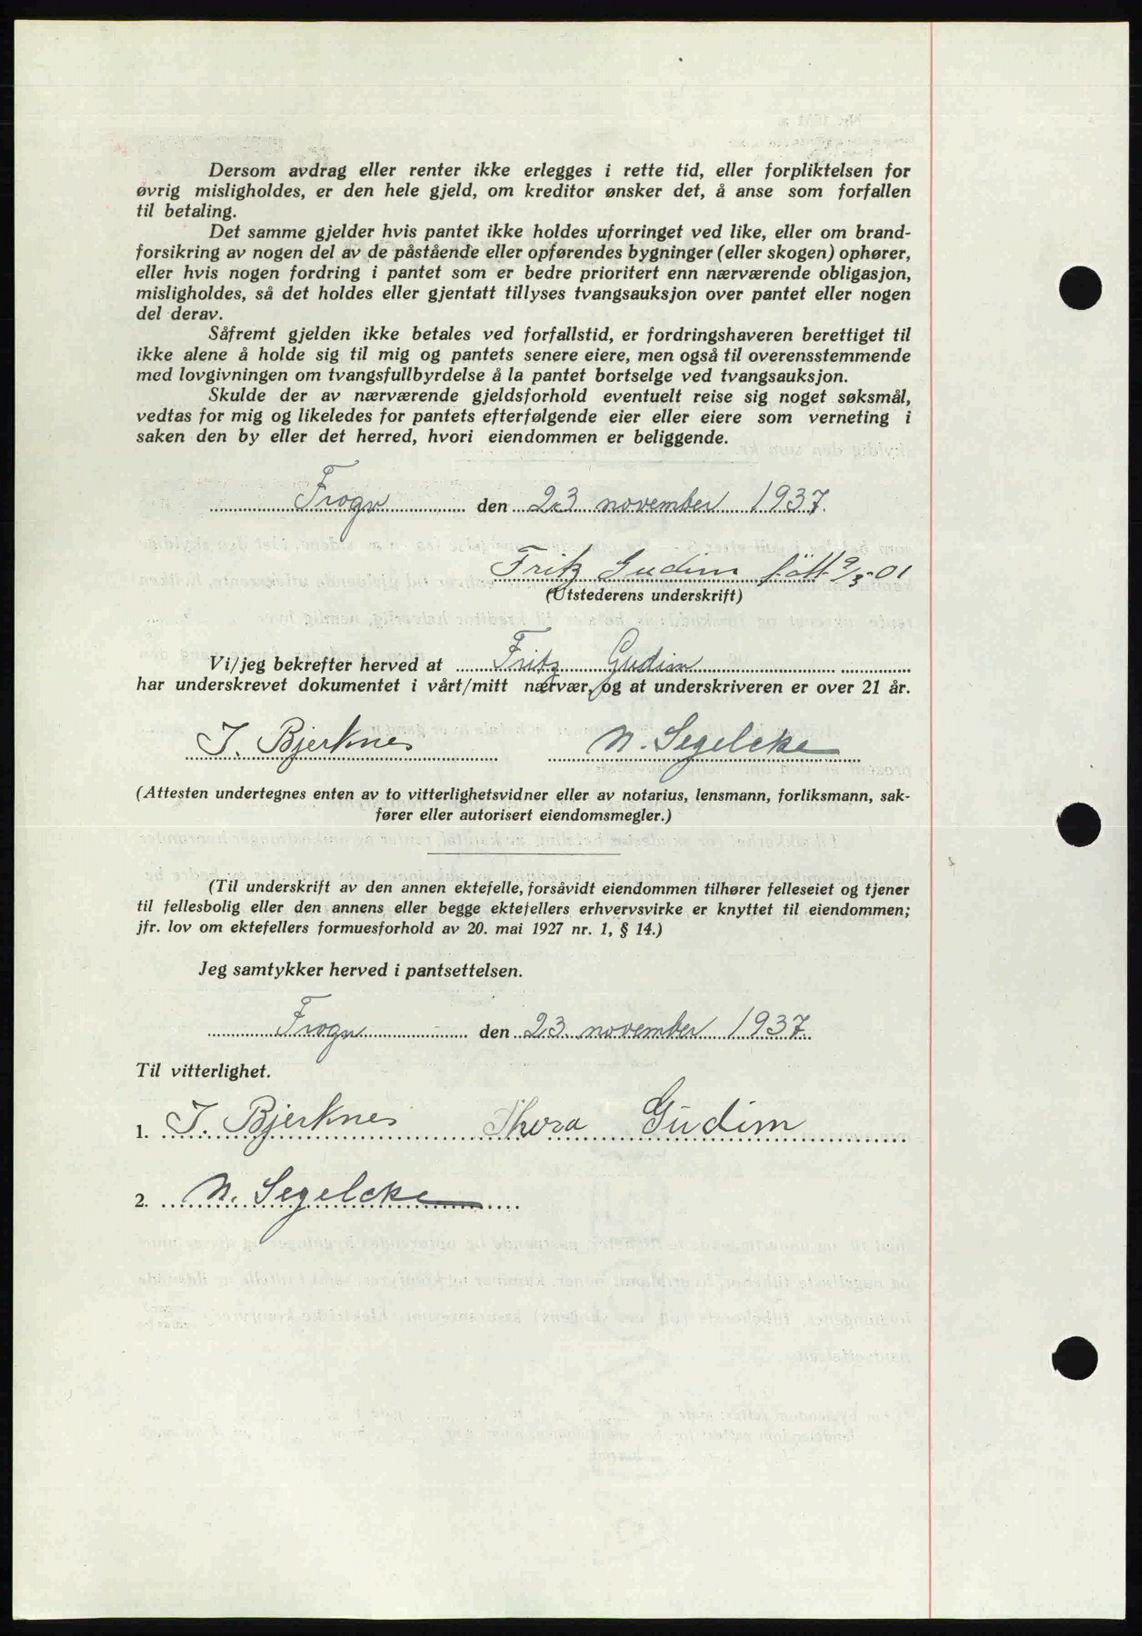 Dersom avdrag eller renter ikke erlegges i rette tid, eller forpliktelsen for
øvrig misligholdes, er den hele gjeld, om kreditor ønsker det, å anse som forfallen
til betaling.
Det samme gjelder hvis pantet ikke holdes uforringet ved like, eller om brand-
forsikring av nogen del av de påstående eller opførendes bygninger (eller skogen) ophører,
eller hvis nogen fordring i pantet som er bedre prioritert enn nærværende obligasjon,
misligholdes, så det holdes eller gjentatt tillyses tvangsauksjon over pantet eller nogen
del derav.
Såfremt gjelden ikke betales ved forfallstid, er fordringshaveren berettiget til
ikke alene å holde sig til mig og pantets senere eiere, men også til overensstemmende
med lovgivningen om tvangsfullbyrdelse å la pantet bortselge ved tvangsauksjon.
Skulde der av nærværende gjeldsforhold eventuelt reise sig noget søksmål,
vedtas for mig og likeledes for pantets efterfølgende eier eller eiere som verneting i
saken den by eller det herred, hvori eiendommen er beliggende.
Frogn den 23 november 1937.
Fritz Gudim født 9/5-01
(Utstederens underskrift)
Vi/jeg bekrefter herved at Fritz Gudim
har underskrevet dokumentet i vårt/mitt nærvær, og at underskriveren er over 21 år.
J. Bjerknes N. Segelcke
(Attesten undertegnes enten av to vitterlighetsvidner eller av notarius, lensmann, forliksmann, sak-
fører eller autorisert eiendomsmegler.)
(Til underskrift av den annen ektefelle, forsåvidt eiendommen tilhører felleseiet og tjener
til fellesbolig eller den annens eller begge ektefellers erhvervsvirke er knyttet til eiendommen;
jfr. lov om ektefellers formuesforhold av 20. mai 1927 nr. 1, § 14.)
Jeg samtykker herved i pantsettelsen.
Frogn den 23 november 1937.
Til vitterlighet.
1. J. Bjerknes Thora Gudim
2. N. Segelcke